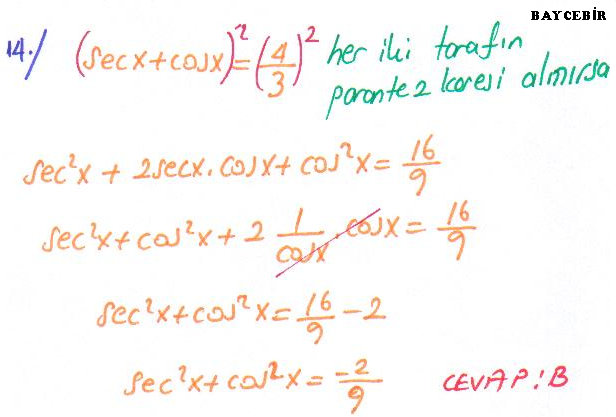 BAYCEBİR
14./ (secx+cosx)²=(4/3)² her iki tarafın
parantez karesi alınırsa
sec²x + 2secx.cosx + cos²x = 16/9
sec²x+cos²x+2 1/cosx . cosx = 16/9
sec²x+cos²x = 16/9 - 2
sec²x+cos²x = -2/9 CEVAP:B